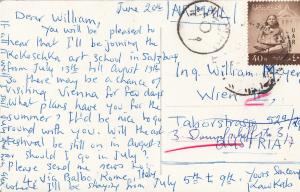 June 20th
Dear William,
You will be pleased to
hear that I'll be joining the
Kokoschka art School in Salzburg
from July 13th till August 13th
So there may be a chance of
visiting Vienna for few days
What plans have you for the
summer? It'd be nice to go
around with you. Will the art
festival be still on in August
or should I go in July?
Please send me news to
via Balbo, Rome, Italy
I'll be staying from July 5th t 9th.
AIR MAIL
40
Ing. William Meyer
Wien
Taborstrasse 52
AUSTRIA
Yours Sincere